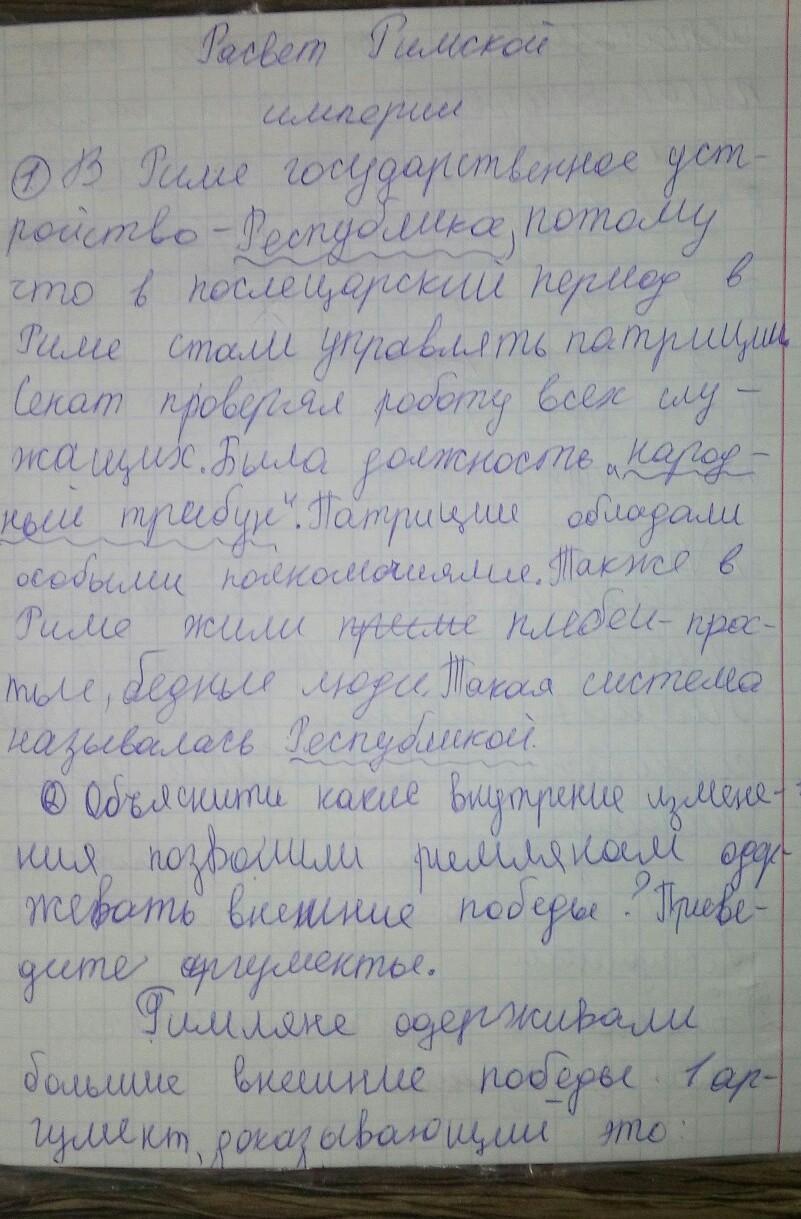 Расвет Римской
империи
① В Риме государственное уст-
ройство - Республика, потому
что в послецарский период в
Риме стали управлять патриции.
Сенат проверял роботу всех слу-
жащих. Была должность „народ-
ный трибун". Патриции обладали
особыми полномочиями. Также в
Риме жили плебеи - прос-
тые, бедные люди. Такая система
называлась Республикой.
② Объяснити какие внутрение измене-
ния позволили римлянам одер-
жевать внешние победы? Приве-
дите аргументы.
Римляне одерживали
большие внешние победы. 1 ар-
гумент, доказывающий это: